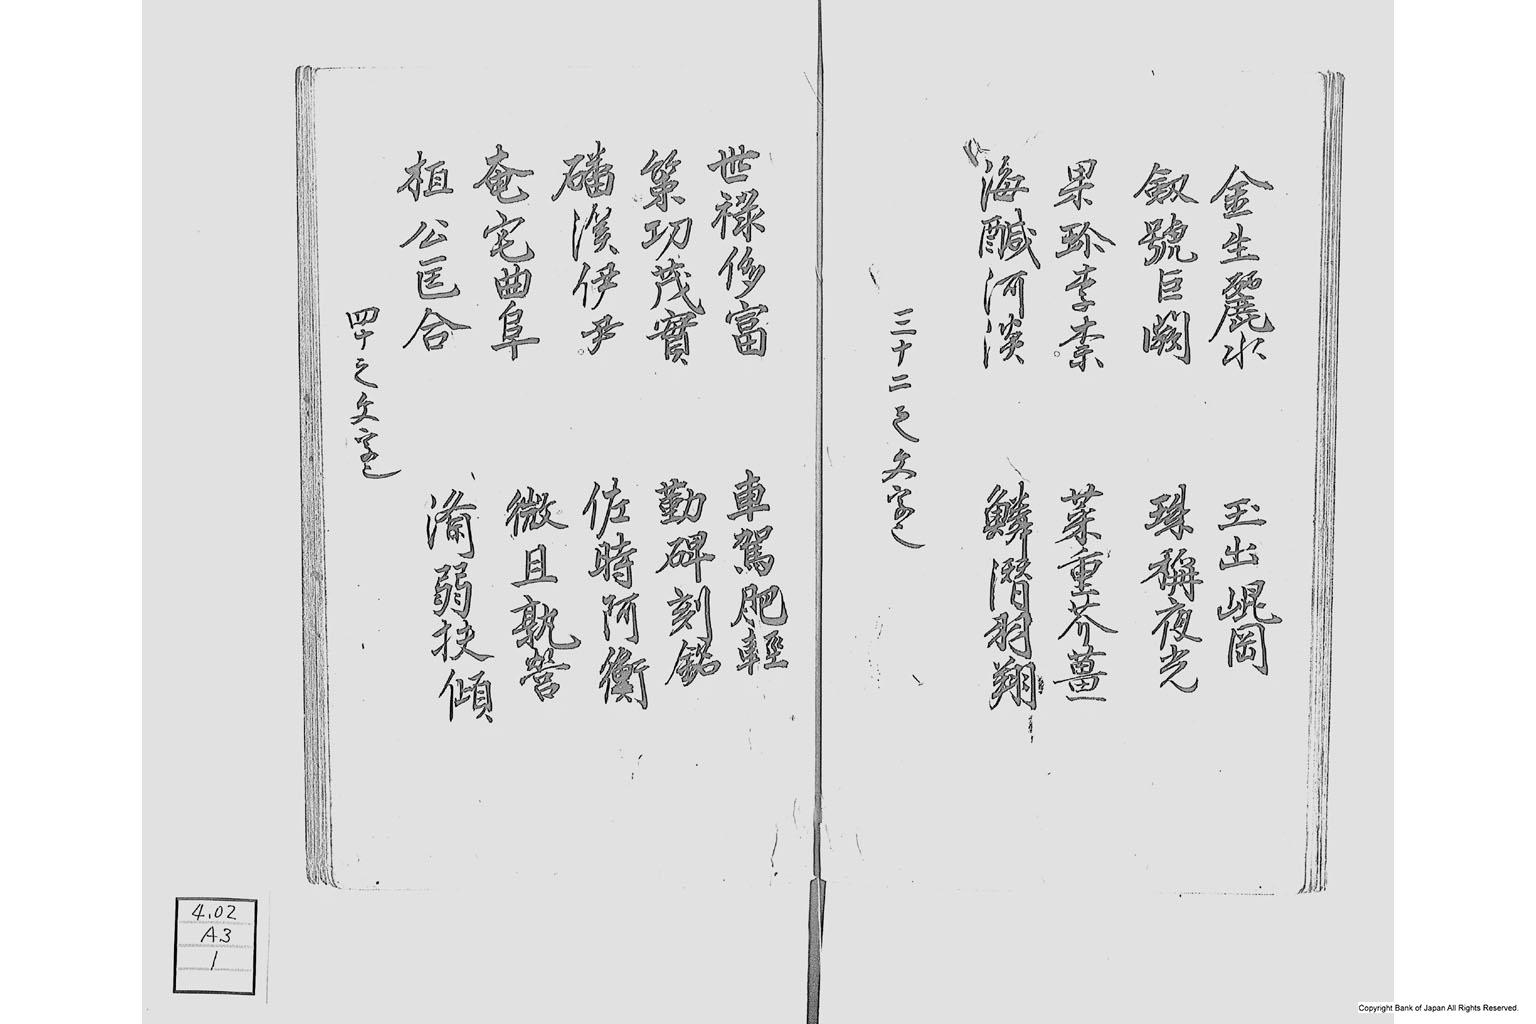 金生麗水　玉出崐岡
劔號巨闕　珠稱夜光
果珎李柰　菜重芥薑
海醎河淡　鱗潛羽翔
三十二之文字也
世祿侈富　車駕肥輕
策功茂實　勤碑刻銘
磻溪伊尹　佐時阿衡
奄宅曲阜　微旦孰營
桓公匡合　濟弱扶傾
四十之文字也
4.02
A3
1
Copyright Bank of Japan All Rights Reserved.